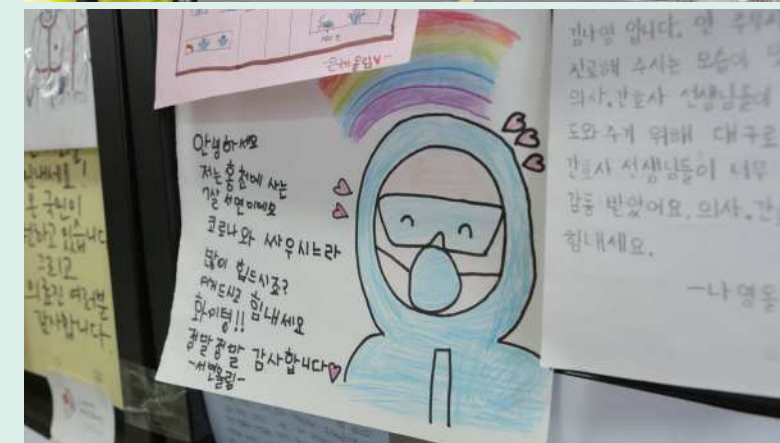 -은서올림♥-
안녕하세요
저는 홍천에 사는
7살 서연이에요
코로나와 싸우시느라
많이 힘드시죠?
힘내세요
화이팅!!
정말정말 감사합니다♡
-서연올림-
김나영 입니다.
진료해 주시는 모습이
의사,간호사 선생님들이
도와주기 위해 대구로
간호사 선생님들이 너무
감동 받았어요. 의사,간
힘내세요.
-나영올
힘내세요!
국민이
하고 있습니다
그리고
의료진 여러분
감사합니다